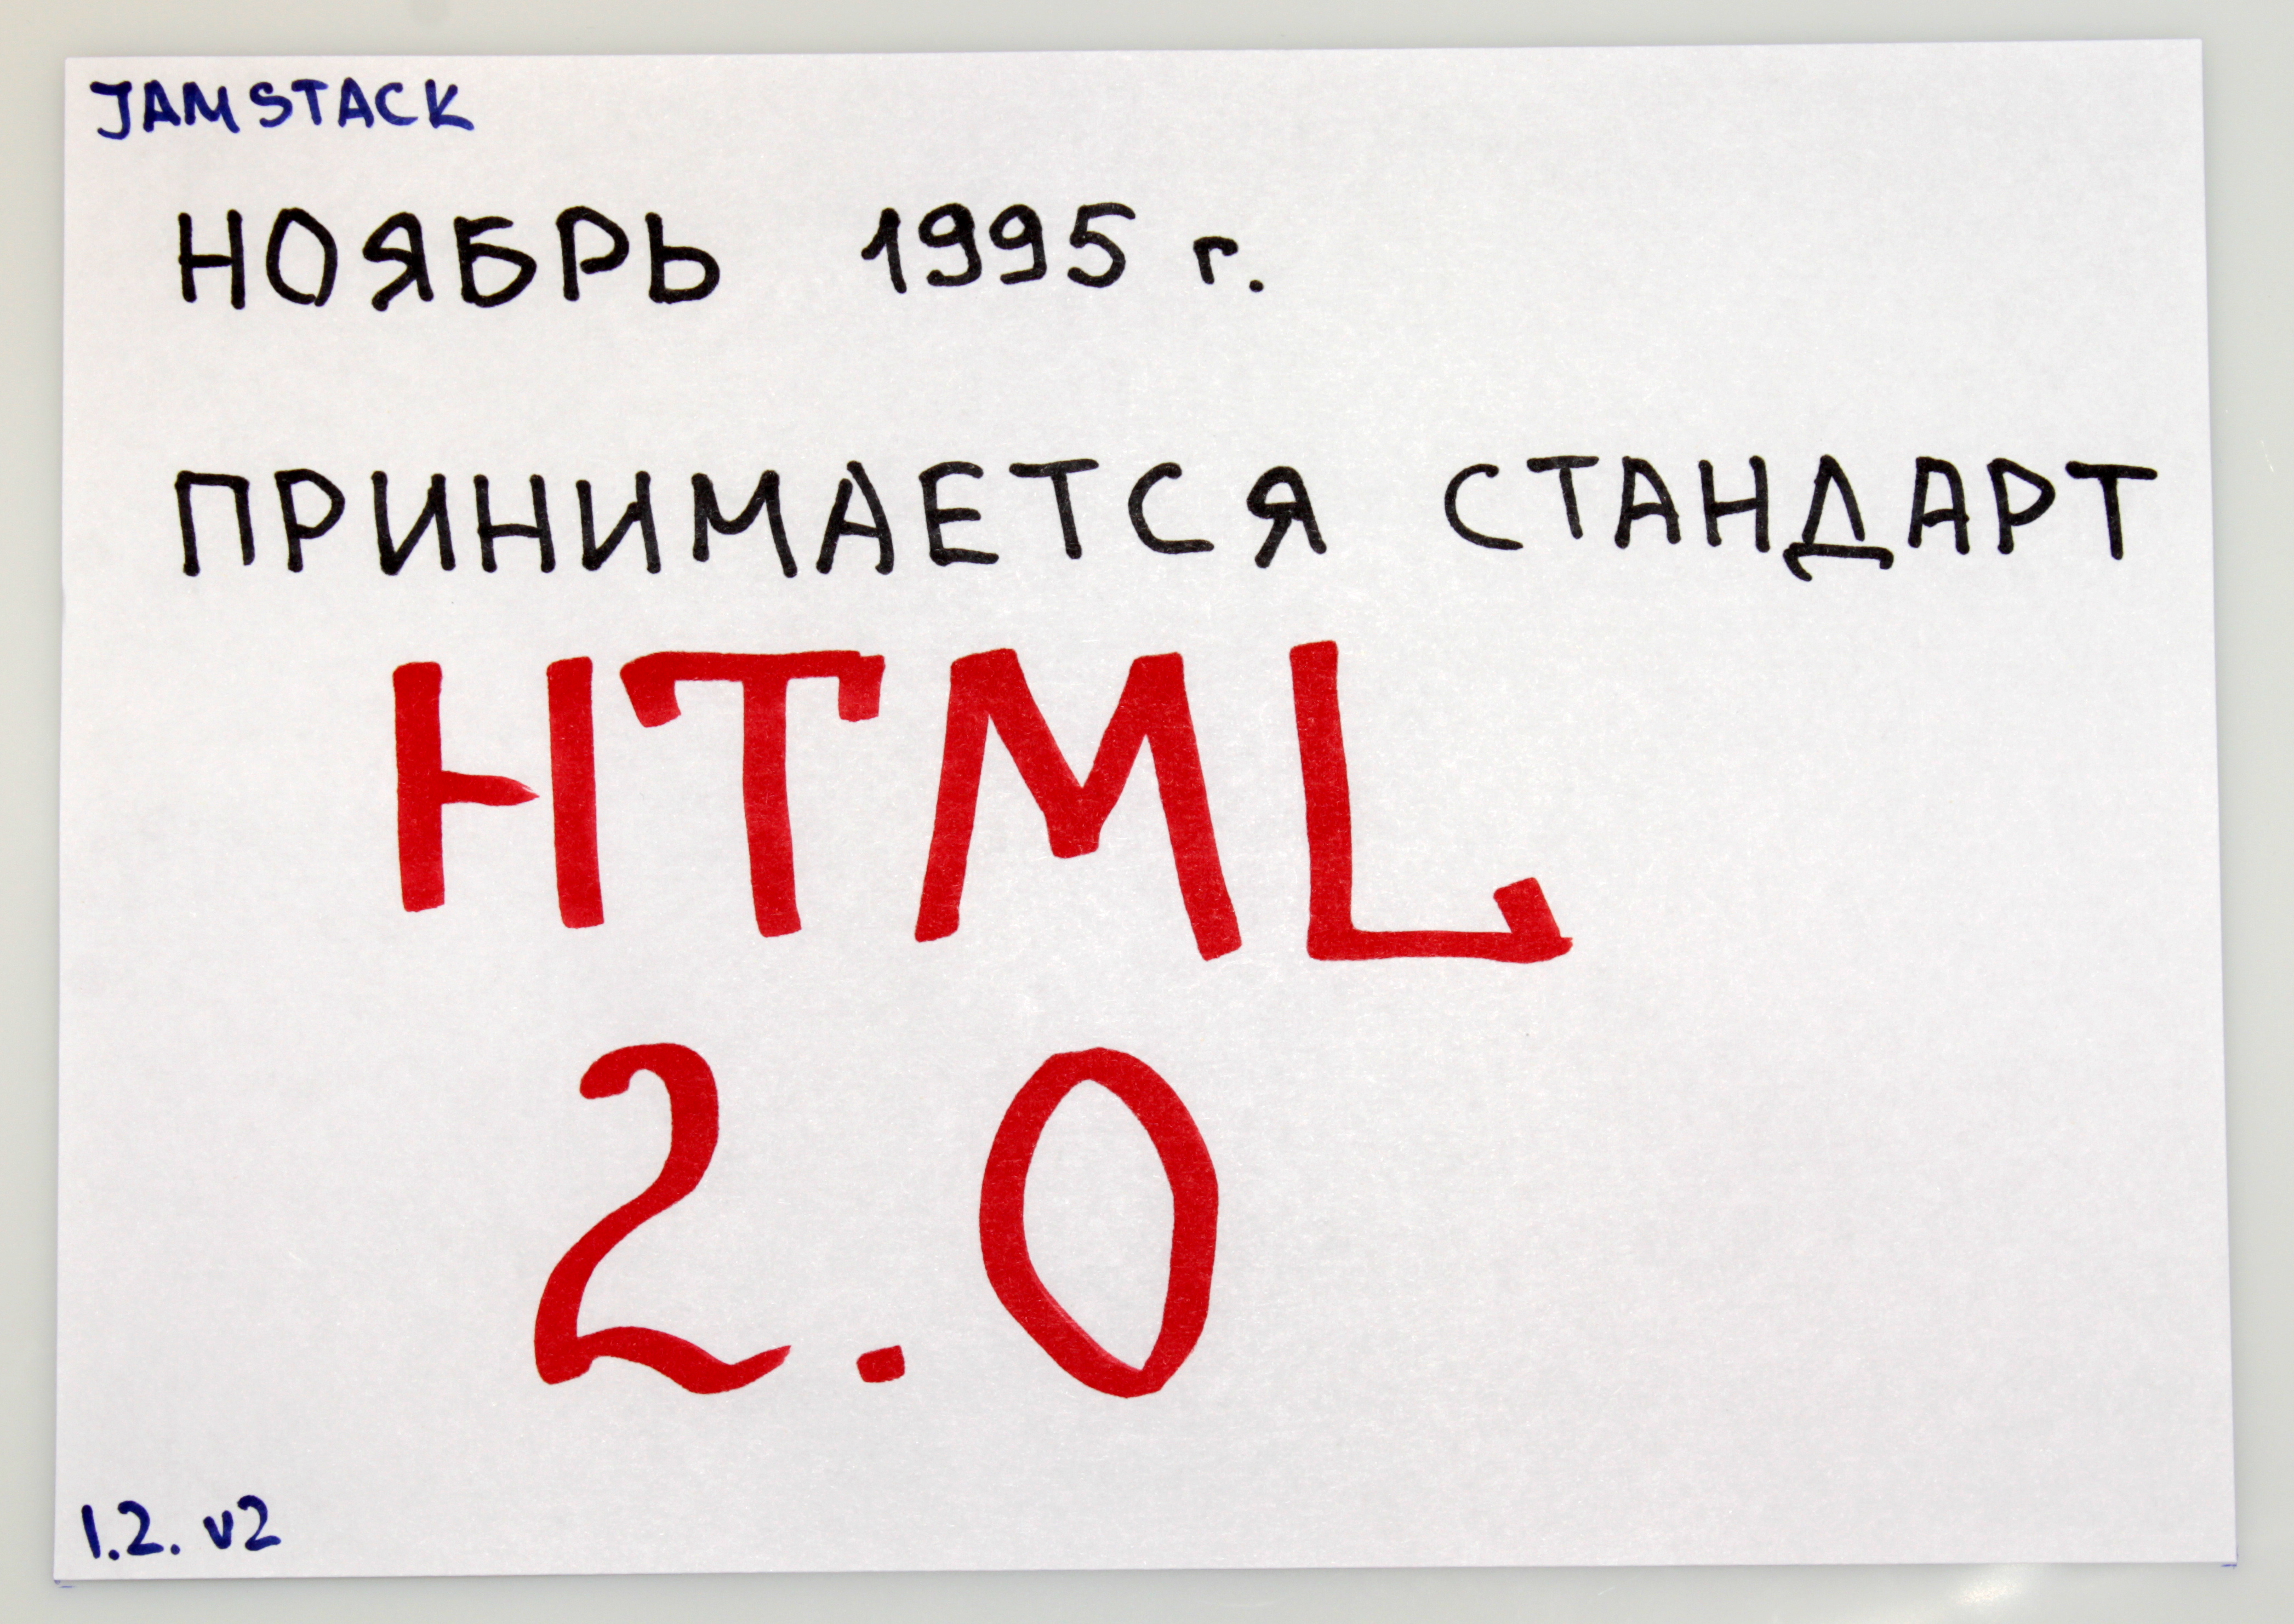 JAMSTACK
НОЯБРЬ 1995 г.
ПРИНИМАЕТСЯ СТАНДАРТ
HTML
2.0
1.2. v2